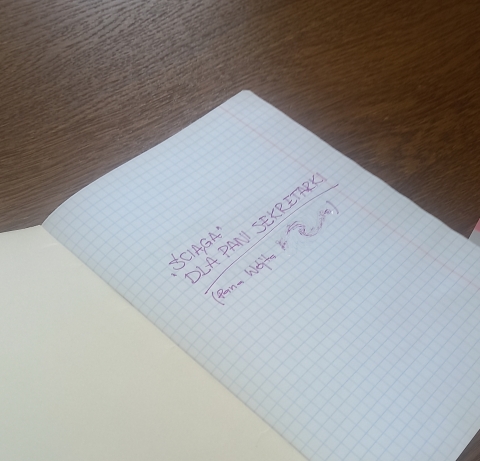 „ŚCIĄGA"
DLA PANI SEKRETARKI
(Pana Wójta